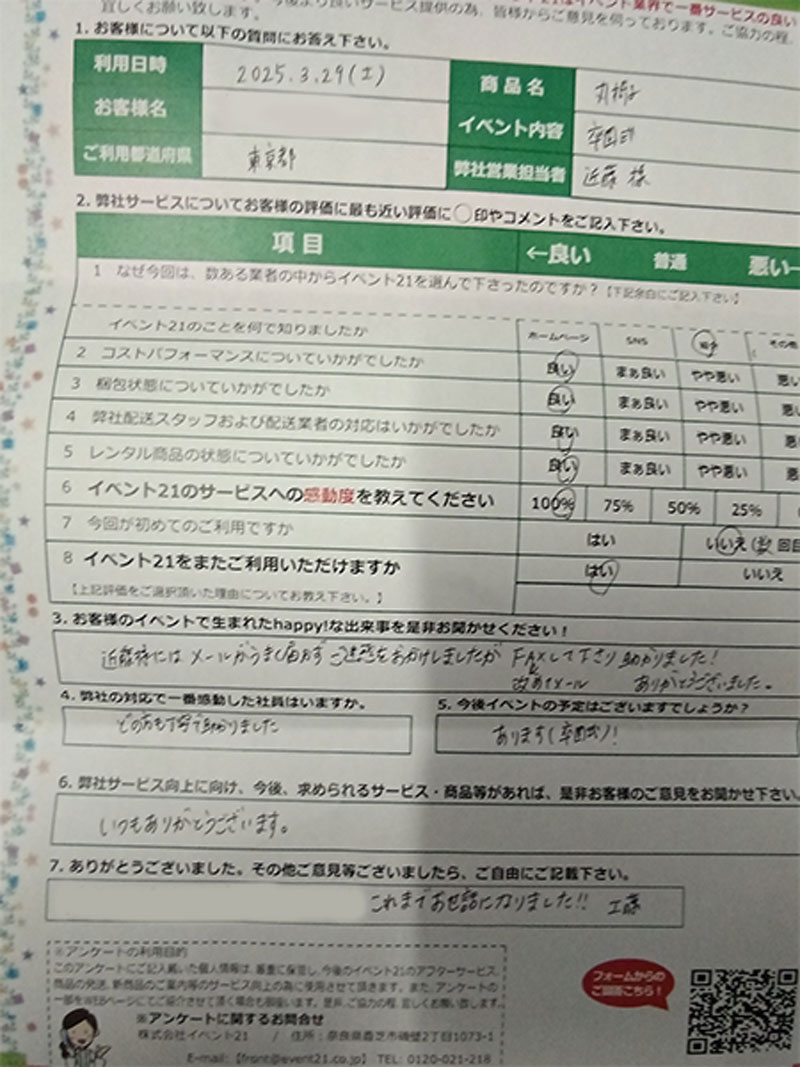 宜しくお願い致します。今後より良いサービス提供の為、皆様からご意見を伺っております。ご協力の程、
1. お客様について以下の質問にお答え下さい。
利用日時 2025.3.29(土) 商品名 丸椅子
お客様名 イベント内容 卒園式
ご利用都道府県 東京都 弊社営業担当者 近藤 様
2. 弊社サービスについてお客様の評価に最も近い評価に○印やコメントをご記入下さい。
項目 ←良い 普通 悪い
1 なぜ今回は、数ある業者の中からイベント21を選んで下さったのですか?【下記余白にご記入下さい】
イベント21のことを何で知りましたか ホームページ SNS 紹介 その他
2 コストパフォーマンスについていかがでしたか 良い まぁ良い やや悪い 悪い
3 梱包状態についていかがでしたか 良い まぁ良い やや悪い 悪い
4 弊社配送スタッフおよび配送業者の対応はいかがでしたか 良い まぁ良い やや悪い 悪
5 レンタル商品の状態についていかがでしたか 良い まぁ良い やや悪い 悪
6 イベント21のサービスへの感動度を教えてください 100% 75% 50% 25%
7 今回が初めてのご利用ですか はい いいえ(数 回目
8 イベント21をまたご利用いただけますか はい いいえ
【上記評価をご選択頂いた理由についてお教え下さい。】
3. お客様のイベントで生まれたhappy!な出来事を是非お聞かせください!
近藤様には メールがうまく届かず ご迷惑をおかけしましたが FAXして下さり 助かりました!
改めてメール ありがとうございました。
4. 弊社の対応で一番感動した社員はいますか。 5. 今後イベントの予定はございますでしょうか?
どの方も丁寧で助かりました あります(卒園式)!
6. 弊社サービス向上に向け、今後、求められるサービス・商品等があれば、是非お客様のご意見をお聞かせ下さい。
いつもありがとうございます。
7. ありがとうございました。その他ご意見等ございましたら、ご自由にご記載下さい。
これまでお世話になりました!! 工藤
※アンケートの利用目的
このアンケートにご記入戴いた個人情報は、厳重に保管し、今後のイベント21のアフターサービス、
商品の発送、新商品のご案内等のサービス向上の為に使用させて頂きます。また、アンケートの
一部をWEBページにてご紹介させて頂く場合も御座います。是非、ご協力の程、宜しくお願い致します。
※アンケートに関するお問合せ
株式会社イベント21 / 住所:奈良県香芝市磯壁2丁目1073-1
E-mail:【front@event21.co.jp】 TEL: 0120-021-218
フォームからの
ご回答こちら!